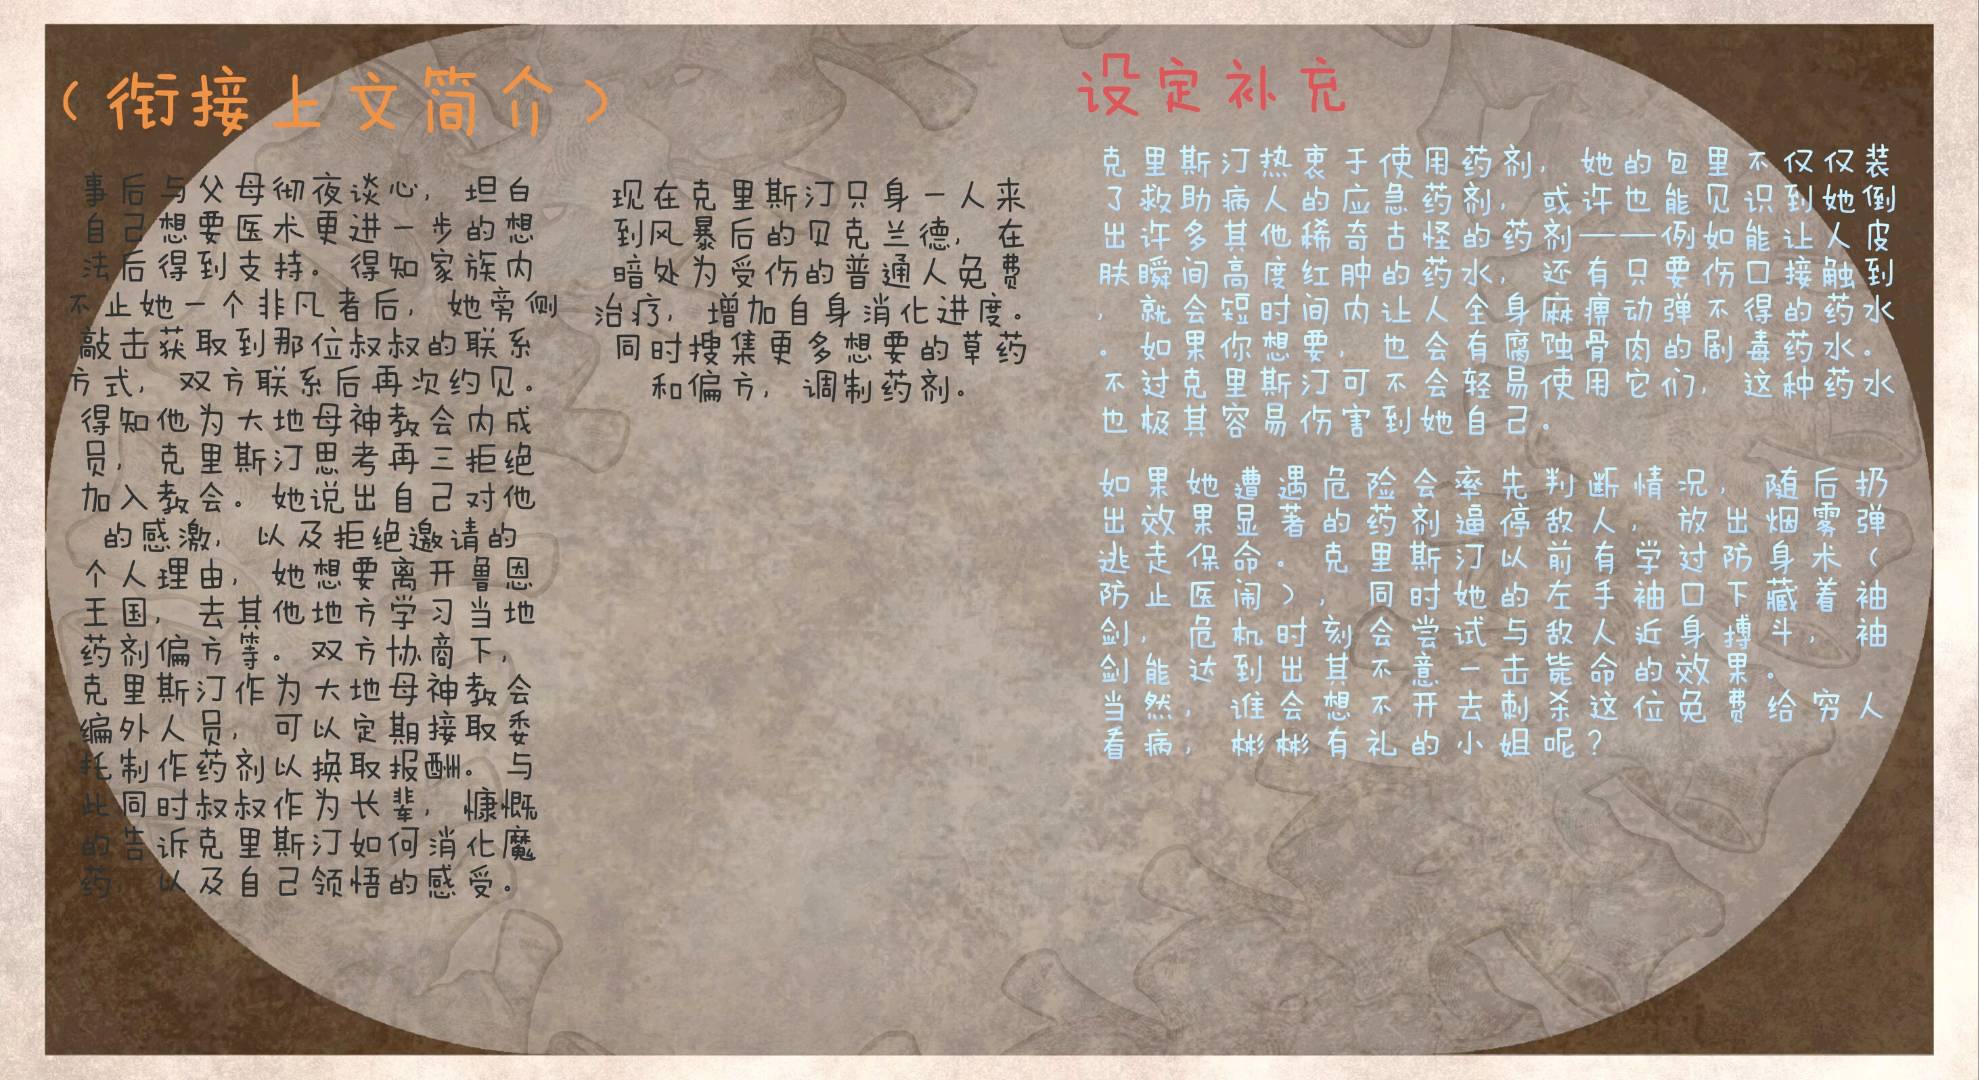 （衔接上文简介）
事后与父母彻夜谈心，坦白
自己想要医术更进一步的想
法后得到支持。得知家族内
不止她一个非凡者后，她旁侧
敲击获取到那位叔叔的联系
方式，双方联系后再次约见。
得知他为大地母神教会内成
员，克里斯汀思考再三拒绝
加入教会。她说出自己对他
的感激，以及拒绝邀请的
个人理由，她想要离开鲁恩
王国，去其他地方学习当地
药剂偏方等。双方协商下，
克里斯汀作为大地母神教会
编外人员，可以定期接取委
托制作药剂以换取报酬。与
此同时叔叔作为长辈，慷慨
的告诉克里斯汀如何消化魔
药，以及自己领悟的感受。
现在克里斯汀只身一人来
到风暴后的贝克兰德，在
暗处为受伤的普通人免费
治疗，增加自身消化进度。
同时搜集更多想要的草药
和偏方，调制药剂。
设定补充
克里斯汀热衷于使用药剂，她的包里不仅仅装
了救助病人的应急药剂，或许也能见识到她倒
出许多其他稀奇古怪的药剂——例如能让人皮
肤瞬间高度红肿的药水，还有只要伤口接触到
，就会短时间内让人全身麻痹动弹不得的药水
。如果你想要，也会有腐蚀骨肉的剧毒药水。
不过克里斯汀可不会轻易使用它们，这种药水
也极其容易伤害到她自己。
如果她遭遇危险会率先判断情况，随后扔
出效果显著的药剂逼停敌人，放出烟雾弹
逃走保命。克里斯汀以前有学过防身术（
防止医闹），同时她的左手袖口下藏着袖
剑，危机时刻会尝试与敌人近身搏斗，袖
剑能达到出其不意一击毙命的效果。
当然，谁会想不开去刺杀这位免费给穷人
看病，彬彬有礼的小姐呢？